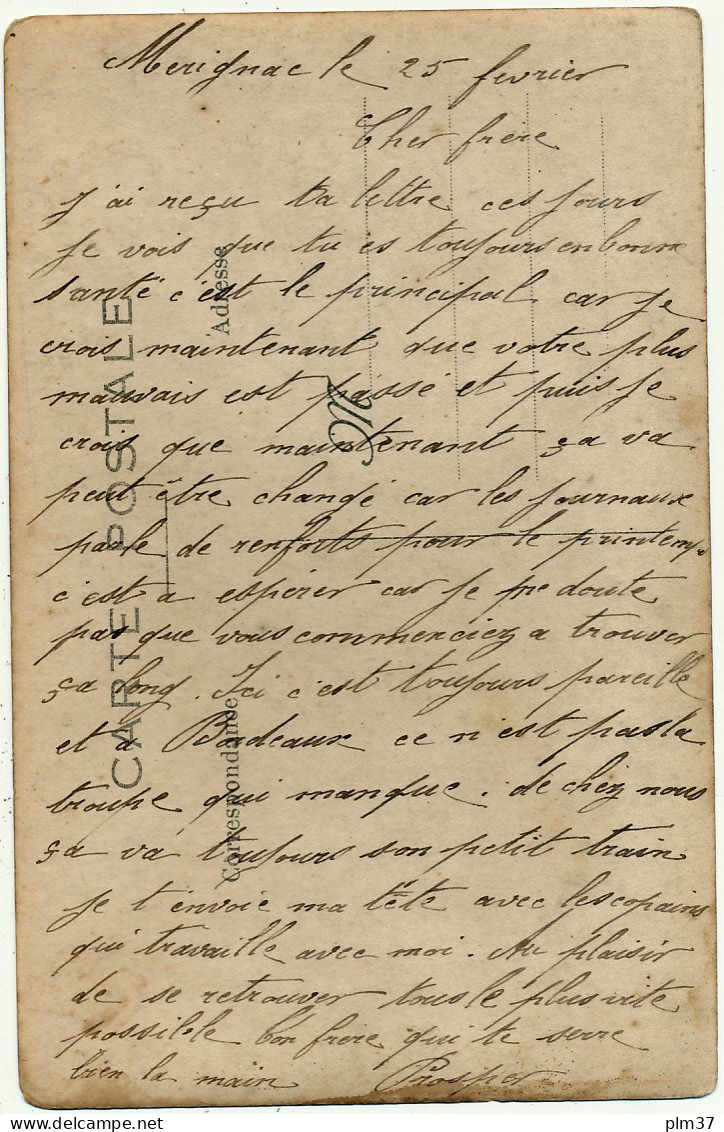 Merignac le 25 fevrier
Cher frere
J'ai reçu ta lettre ces jours
Je vois que tu es toujours en bonne
santé c'est le principal car je
crois maintenant que votre plus
mauvais est passé et puis je
crois que maintenant ça va
peut être changé car les journaux
parle de renforts pour le printemp
c'est a espérer car je me doute
pas que vous commenciez a trouver
ça long. Ici c'est toujours pareille
et a Bordeaux ce n'est pas la
troupe qui manque. de chez nous
ça va toujours son petit train
je t'envoie ma tête avec les copains
qui travaille avec moi. Au plaisir
de se retrouver tous le plus vite
possible ton frere qui te serre
bien la main Prosper
CARTE POSTALE
Correspondance
Adresse
M
plm37